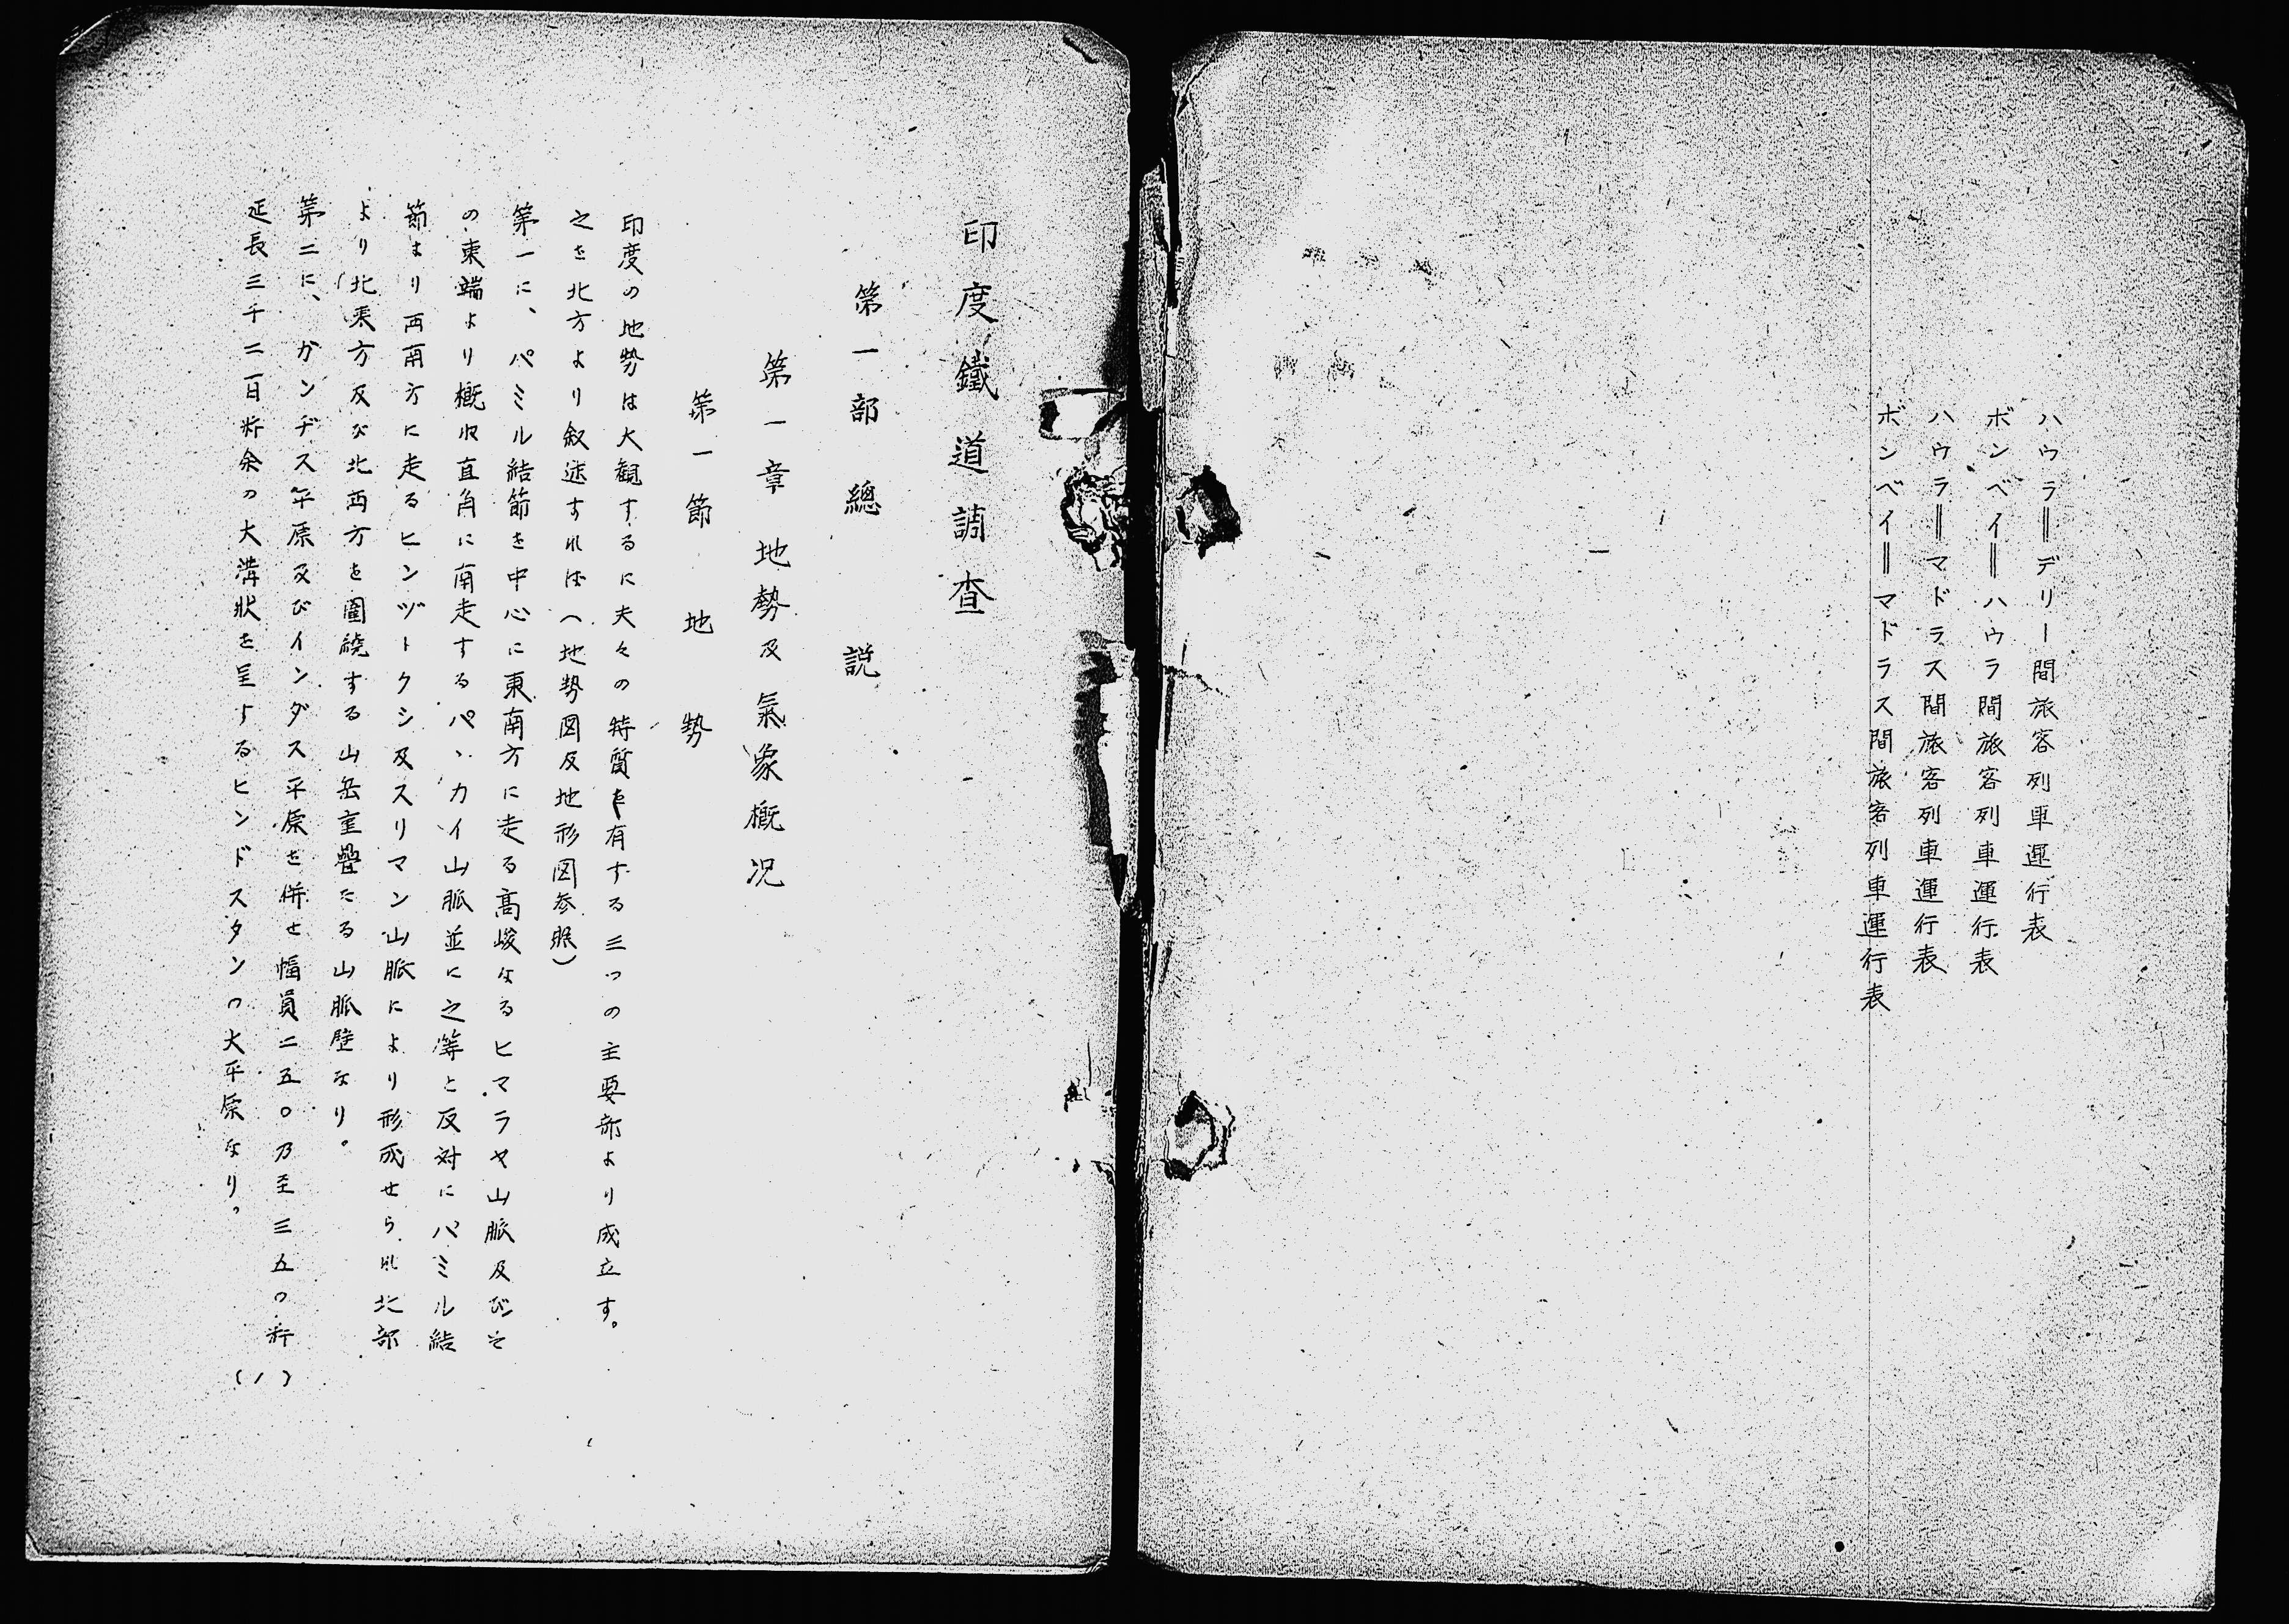 ハウラ‖デリー間旅客列車運行表
ボンベイ‖ハウラ間旅客列車運行表
ハウラ‖マドラス間旅客列車運行表
ボンベイ‖マドラス間旅客列車運行表
印度鐵道調査
第一部　總　説
第一章　地勢及氣象概況
第一節　地　勢
印度の地勢は大観するに夫々の特質を有する三つの主要部より成立す。
之を北方より叙述すれば（地勢図及地形図参照）
第一に、パミル結節を中心に東南方に走る高峻なるヒマラヤ山脈及びそ
の東端より概ね直角に南走するパヽカイ山脈並に之等と反対にパミル結
節より西南方に走るヒンヅトクシ及スリマン山脈により形成せられ北部
より北東方及び北西方を圍繞する山岳重疊たる山脈壁なり。
第二に、ガンヂス平原及びインダス平原を併せ幅員二五〇乃至三五〇粁
延長三千二百粁余の大溝状を呈するヒンドスタンの大平原なり。
(1)